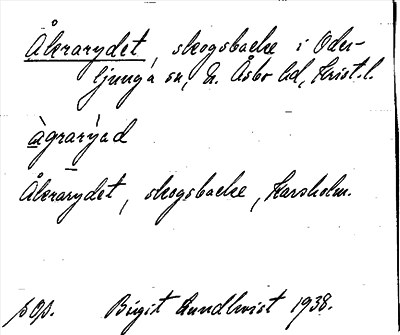 Åkrarydet, skogsbacke i Oder-
ljunga sn, N. Åsbo hd, Krist. l.
àgrarỳad
Åkrarydet, skogsbacke, Karsholm.
pop. Birgit Lundkvist 1938.